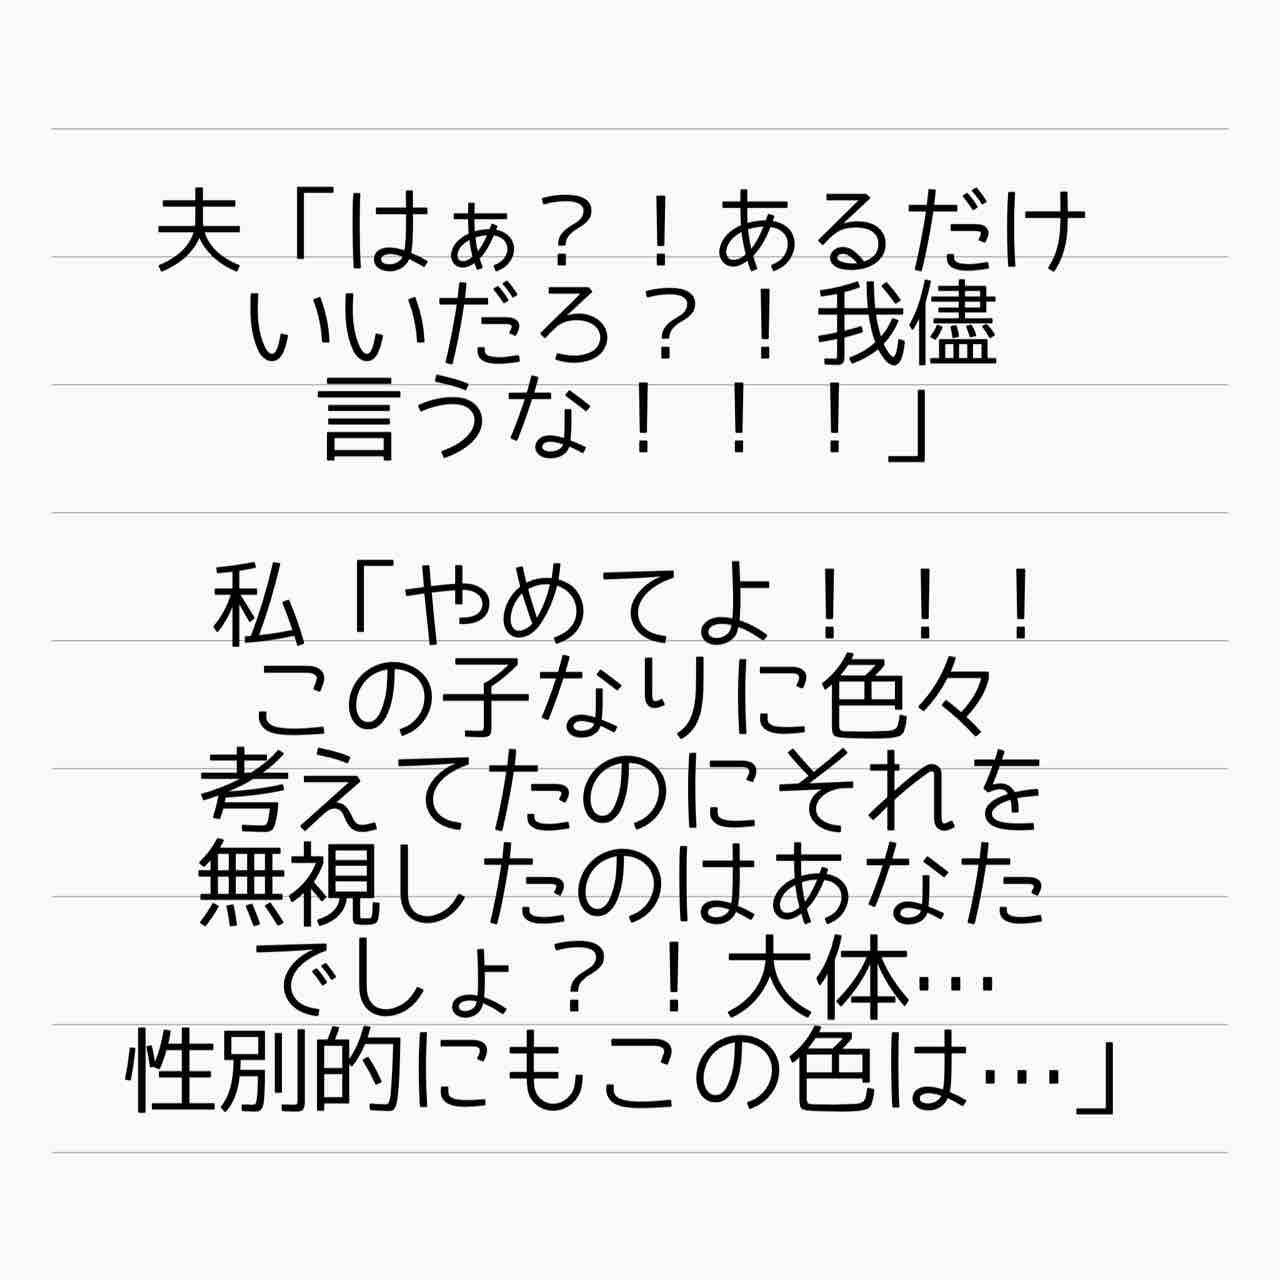 夫「はぁ？！あるだけ
いいだろ？！我儘
言うな！！！」
私「やめてよ！！！
この子なりに色々
考えてたのにそれを
無視したのはあなた
でしょ？！大体…
性別的にもこの色は…」